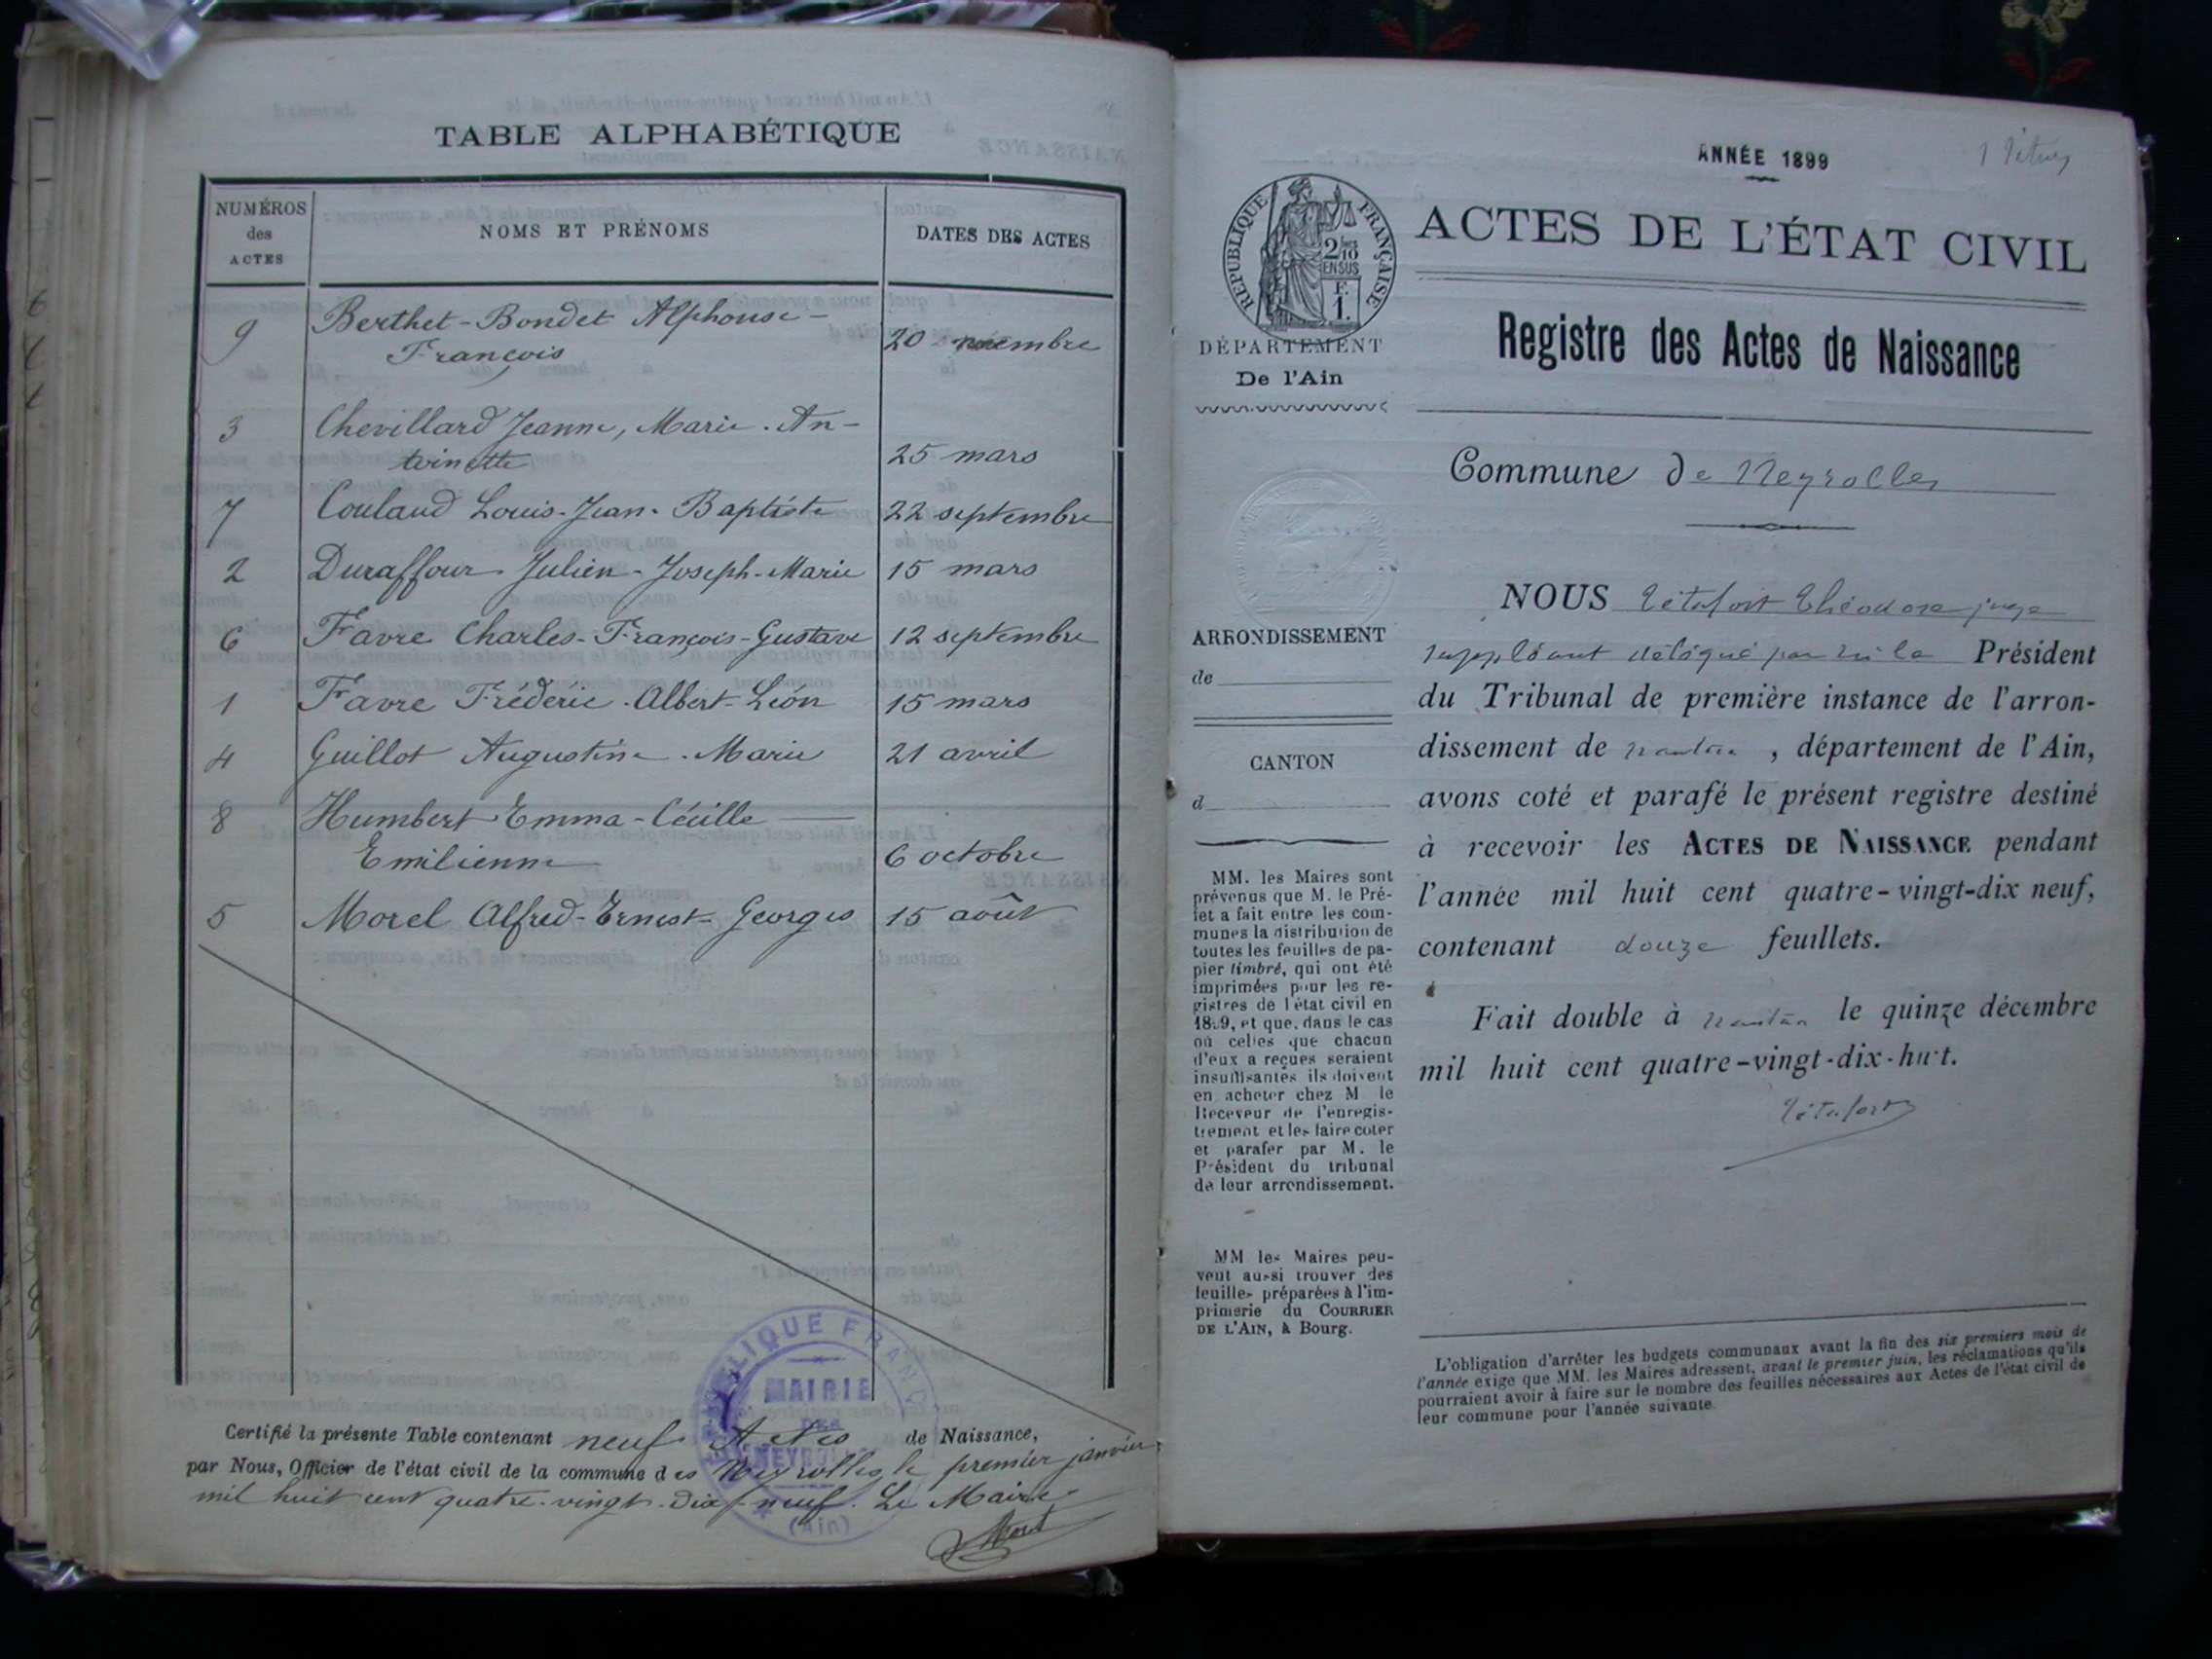 TABLE ALPHABÉTIQUE
NUMÉROS
des
ACTES
NOMS ET PRÉNOMS
DATES DES ACTES
9 Berthet-Bondet Alphonse-
François 20 novembre
3 Chevillard Jeanne, Marie-An-
toinette 25 mars
7 Couland Louis-Jean-Baptiste 22 septembre
2 Duraffour Julien-Joseph-Marie 15 mars
6 Favre Charles-François-Gustave 12 septembre
1 Favre Fréderic-Albert-Léon 15 mars
4 Guillot Augustine-Marie 21 avril
8 Humbert Emma-Cécille
Emilienne 6 octobre
5 Morel Alfred-Ernest-Georges 15 août
RÉPUBLIQUE FRANÇ
MAIRIE
DES
NEYROLLES
(Ain)
Certifié la présente Table contenant neuf Actes de Naissance,
par Nous, Officier de l'état civil de la commune des Neyrolles, le premier janvier
mil huit cent quatre-vingt-dix-neuf. Le Maire
ANNÉE 1899
RÉPUBLIQUE FRANÇAISE
2/10
EN SUS
F.
1.
DÉPARTEMENT
De l'Ain
ACTES DE L'ÉTAT CIVIL
Registre des Actes de Naissance
Commune de Neyrolles
ARRONDISSEMENT
de
CANTON
d
MM. les Maires sont
prévenus que M. le Pré-
fet a fait entre les com-
munes la distribution de
toutes les feuilles de pa-
pier timbré, qui ont été
imprimées pour les re-
gistres de l'état civil en
1899, et que, dans le cas
où celles que chacun
d'eux a reçues seraient
insuffisantes ils doivent
en acheter chez M le
Receveur de l'enregis-
trement et les faire coter
et parafer par M. le
Président du tribunal
de leur arrondissement.
MM les Maires peu-
vent aussi trouver des
feuilles préparées à l'im-
primerie du COURRIER
DE L'AIN, à Bourg.
NOUS Tétafort Théodore juge
suppléant délégué par M. le Président
du Tribunal de première instance de l'arron-
dissement de Nantua, département de l'Ain,
avons coté et parafé le présent registre destiné
à recevoir les ACTES DE NAISSANCE pendant
l'année mil huit cent quatre-vingt-dix neuf,
contenant douze feuillets.
Fait double à Nantua le quinze décembre
mil huit cent quatre-vingt-dix-huit.
Tétafort
L'obligation d'arrêter les budgets communaux avant la fin des six premiers mois de
l'année exige que MM. les Maires adressent, avant le premier juin, les réclamations qu'ils
pourraient avoir à faire sur le nombre des feuilles nécessaires aux Actes de l'état civil de
leur commune pour l'année suivante.